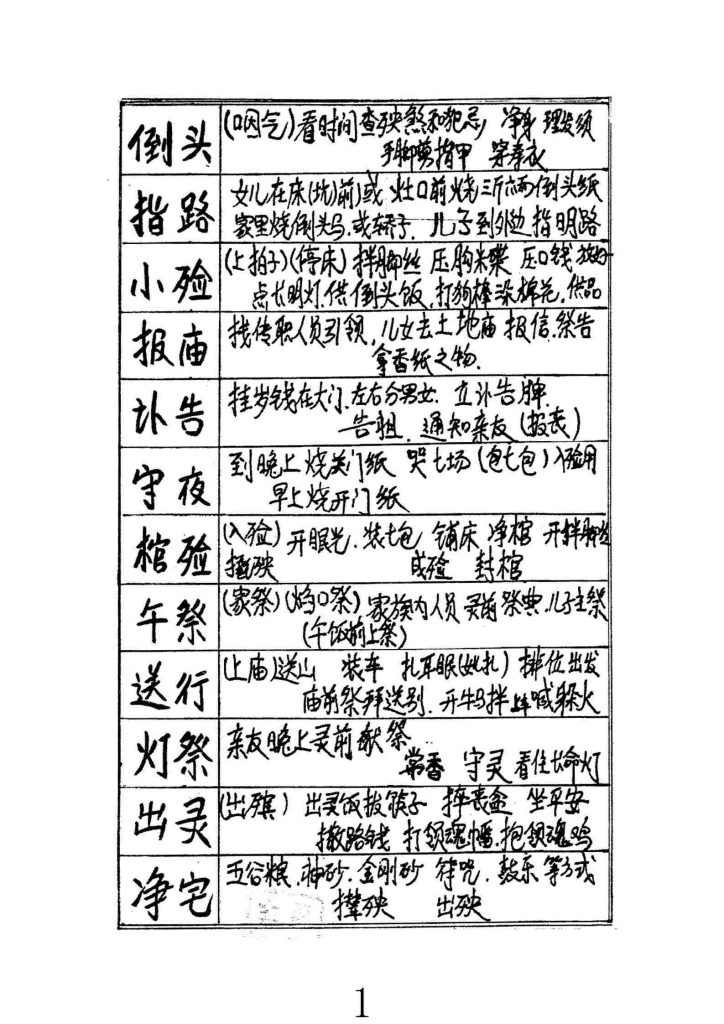 倒头
(咽气)看时间查殃煞和犯忌, 净身 理发须
手脚剪指甲 穿寿衣
指路
女儿在床(炕)前)或 灶口前烧三斤六两倒头纸
家里烧倒头马.或轿子. 儿子到外边指明路
小殓
(上拍子)(停床) 拌脚丝 压胸米碟 压口钱 放好
点长明灯.供倒头饭,打狗棒染棉花,供品
报庙
找传职人员引领,儿女去土地庙报信.祭告
拿香纸之物.
讣告
挂岁钱在大门.左右分男女. 立讣告牌.
告祖. 通知亲友(报丧)
守夜
到晚上烧关门纸 哭七场(包七包)入殓用
早上烧开门纸
棺殓
(入殓)开眼光.装七包 铺床 净棺 开拌脚丝
殃 成殓 封棺
午祭
(家祭)(焰口祭)家族内人员灵前祭典.儿子主祭
(午饭前上祭)
送行
(上庙)送山 装车 扎耳眼(女扎) 排位出发
庙前祭拜送别. 开牛马拌 上车喊躲火
灯祭
亲友晚上灵前献祭
常香 守灵 看住长命灯
出灵
(出殡) 出灵饭拔筷子 摔丧盆 坐平安
撒路钱 打领魂幡.抱领魂鸡
净宅
五谷粮.神砂.金刚砂 符咒.鼓乐等方式
撵殃 出殃
1